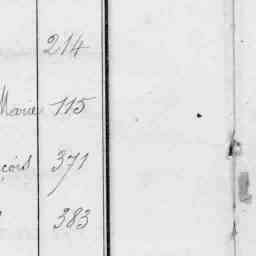 214
Marie 115
çois 371
383